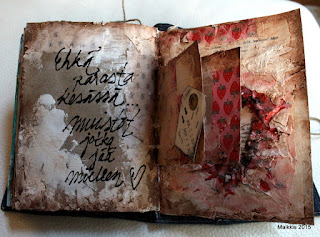 Ehkä
parasta
kesässä...
muistot
jotka
jää
mieleen ♡
Maikkis 2015